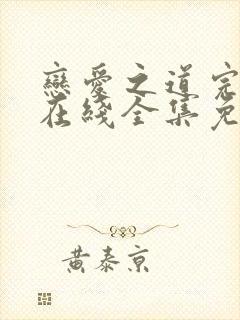 戀愛之道完
在綫全集免
黃泰京